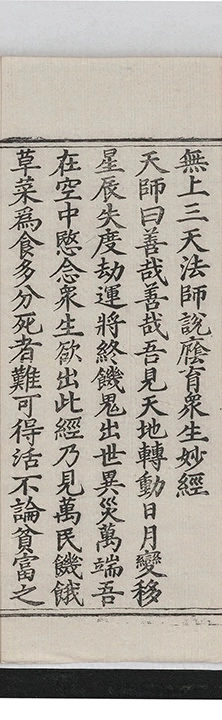 無上三天法師說廕育眾生妙經
天師曰善哉善哉吾見天地轉動日月變移
星辰失度劫運將終饑鬼出世異災萬端吾
在空中愍念眾生欲出此經乃見萬民饑餓
草菜為食多分死者難可得活不論貧富之